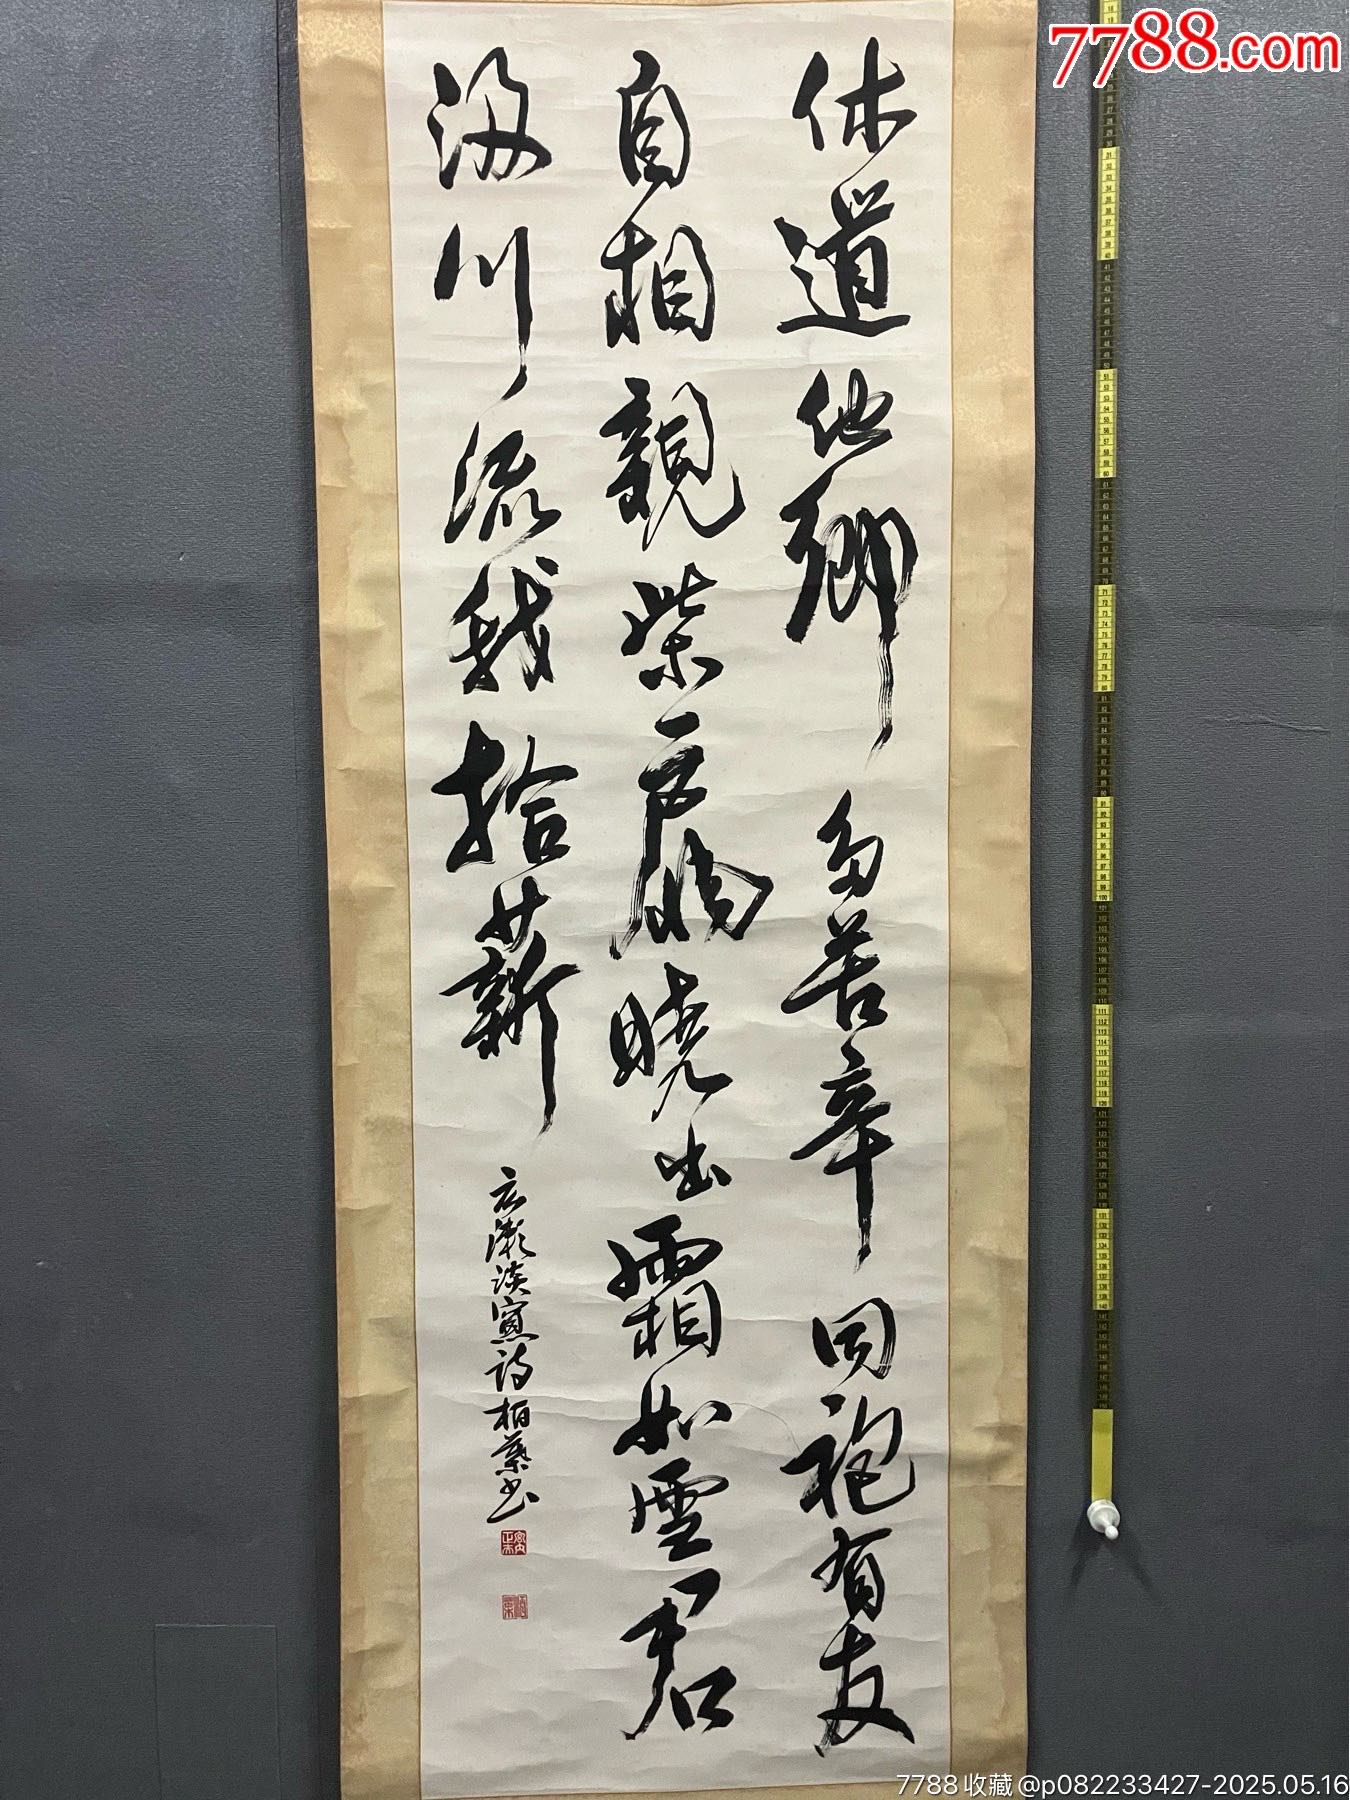 7788.com
休道他鄉多苦辛同袍有友
自相親柴扉暁出霜如雪君
汲川流我拾薪
広瀬淡窓詩柏葉書
7788收藏@p082233427-2025.05.16